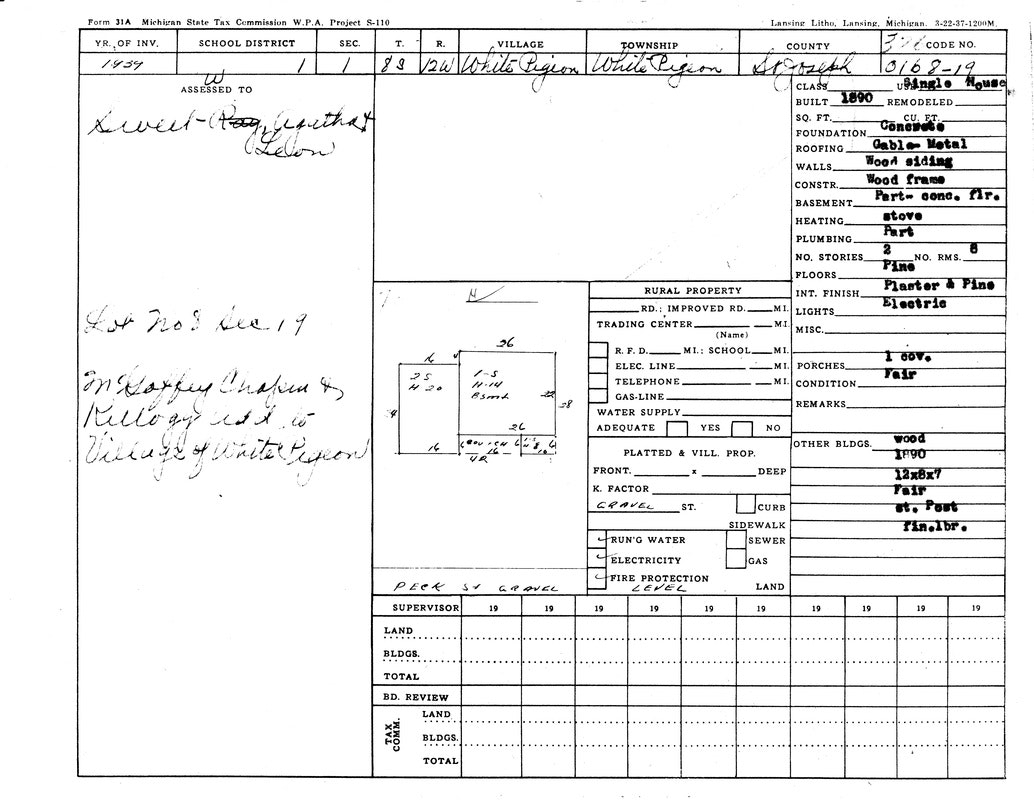 Form 31A Michigan State Tax Commission W.P.A. Project S-110
Lansing Litho, Lansing, Michigan. 3-22-37-1200M.
YR. OF INV. SCHOOL DISTRICT SEC. T. R. VILLAGE TOWNSHIP COUNTY CODE NO.
1939 1 1 8S 12W White Pigeon White Pigeon St Joseph 0168-19
W
ASSESSED TO
Sweet Ray, Agatha &
Lot No 8 Sec 19
McGaffey Chapin &
Kellogg add to
Village of White Pigeon
CLASS USE Single House
BUILT 1890 REMODELED
SQ. FT. CU. FT.
FOUNDATION Concrete
ROOFING Gable- Metal
WALLS Wood siding
CONSTR. Wood frame
BASEMENT Part- conc. flr.
HEATING stove
PLUMBING Part
NO. STORIES 2 NO. RMS. 8
FLOORS Pine
INT. FINISH Plaster & Pine
LIGHTS Electric
MISC.
PORCHES 1 cov.
CONDITION Fair
REMARKS
OTHER BLDGS. wood
1890
12x8x7
Fair
st. Post
fin.lbr.
N
26
16
2 S
H-20
1-S
H-14
Bsmt
22
28
24
26
16
6
16
6
10
42
PECK ST GRAVEL
RURAL PROPERTY
RD.; IMPROVED RD. MI.
TRADING CENTER MI.
(Name)
R. F. D. MI.; SCHOOL MI.
ELEC. LINE MI.
TELEPHONE MI.
GAS-LINE
WATER SUPPLY
ADEQUATE YES NO
PLATTED & VILL. PROP.
FRONT. x DEEP
K. FACTOR
GRAVEL ST. CURB
SIDEWALK
RUN'G WATER SEWER
ELECTRICITY GAS
FIRE PROTECTION
LEVEL LAND
SUPERVISOR 19 19 19 19 19 19 19 19 19 19
LAND
BLDGS.
TOTAL
BD. REVIEW
TAX COMM.
LAND
BLDGS.
TOTAL